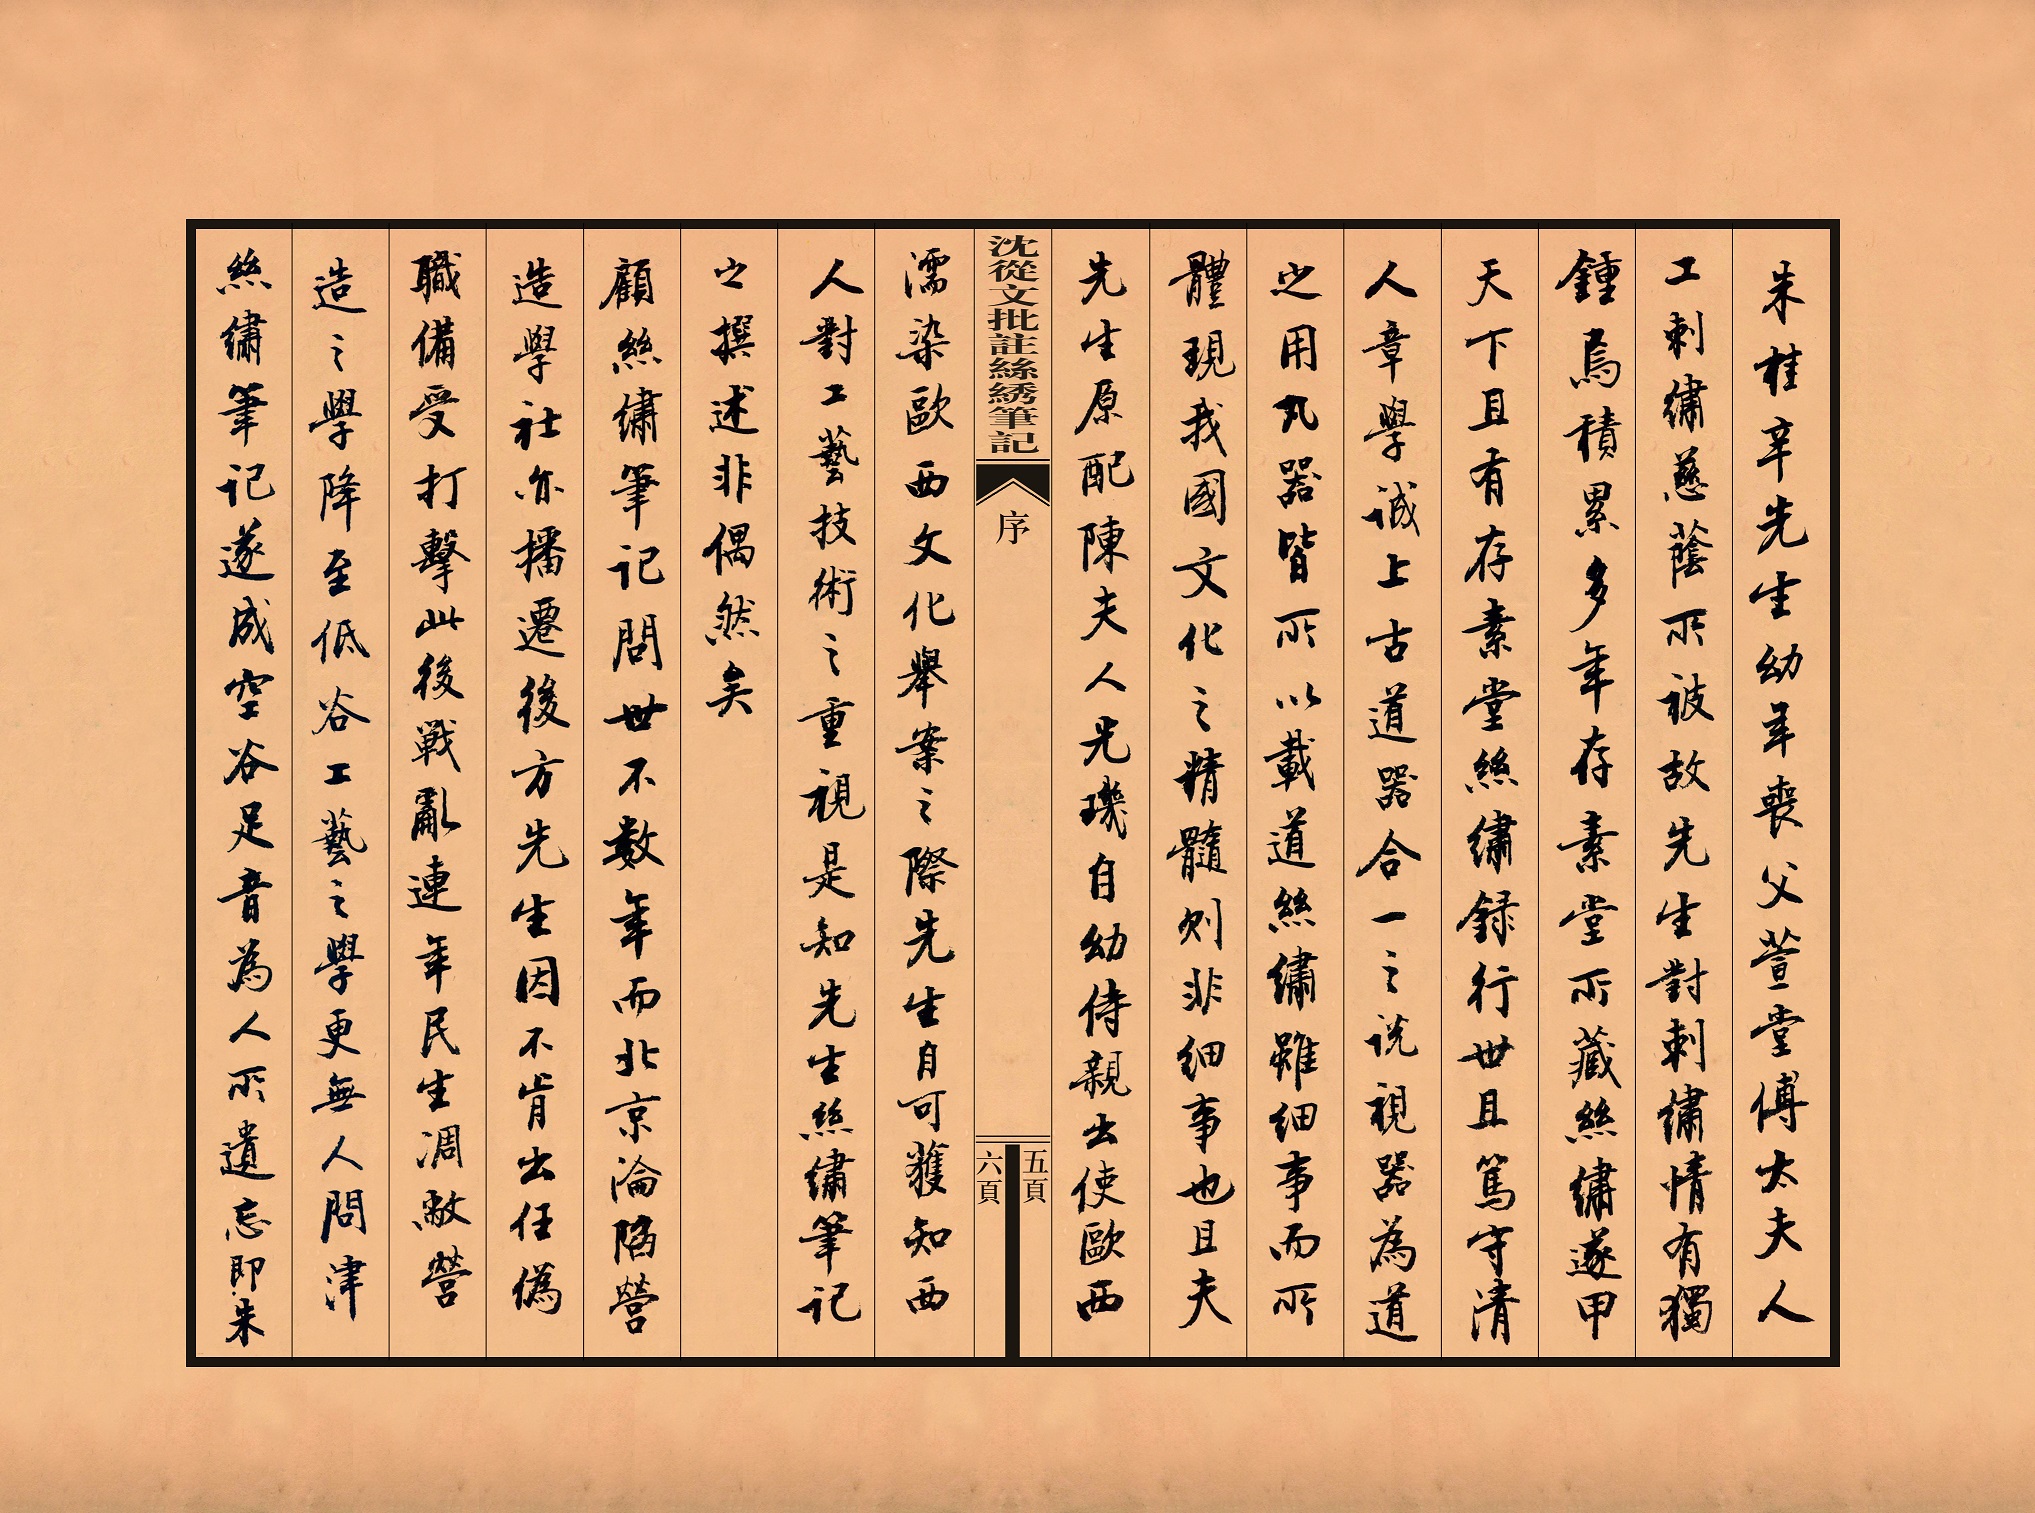 朱桂辛先生幼年喪父萱堂傅太夫人
工刺繡慈蔭所被故先生對刺繡情有獨
鍾焉積累多年存素堂所藏絲繡遂甲
天下且有存素堂絲繡録行世且篤守清
人章學诚上古道器合一之说視器為道
之用凡器皆所以載道絲繡雖细事而所
體現我國文化之精髓则非细事也且夫
先生原配陳夫人光璣自幼侍親出使歐西
沈從文批註絲綉筆記
序
五頁
六頁
濡染歐西文化舉案之際先生自可獲知西
人對工藝技術之重視是知先生絲繡筆記
之撰述非偶然矣
顧絲繡筆记問世不数年而北京淪陷營
造學社亦播遷後方先生因不肯出任偽
職備受打擊此後戦亂連年民生凋敝營
造之學降至低谷工藝之學更無人問津
絲繡筆记遂成空谷足音為人所遺忘即朱